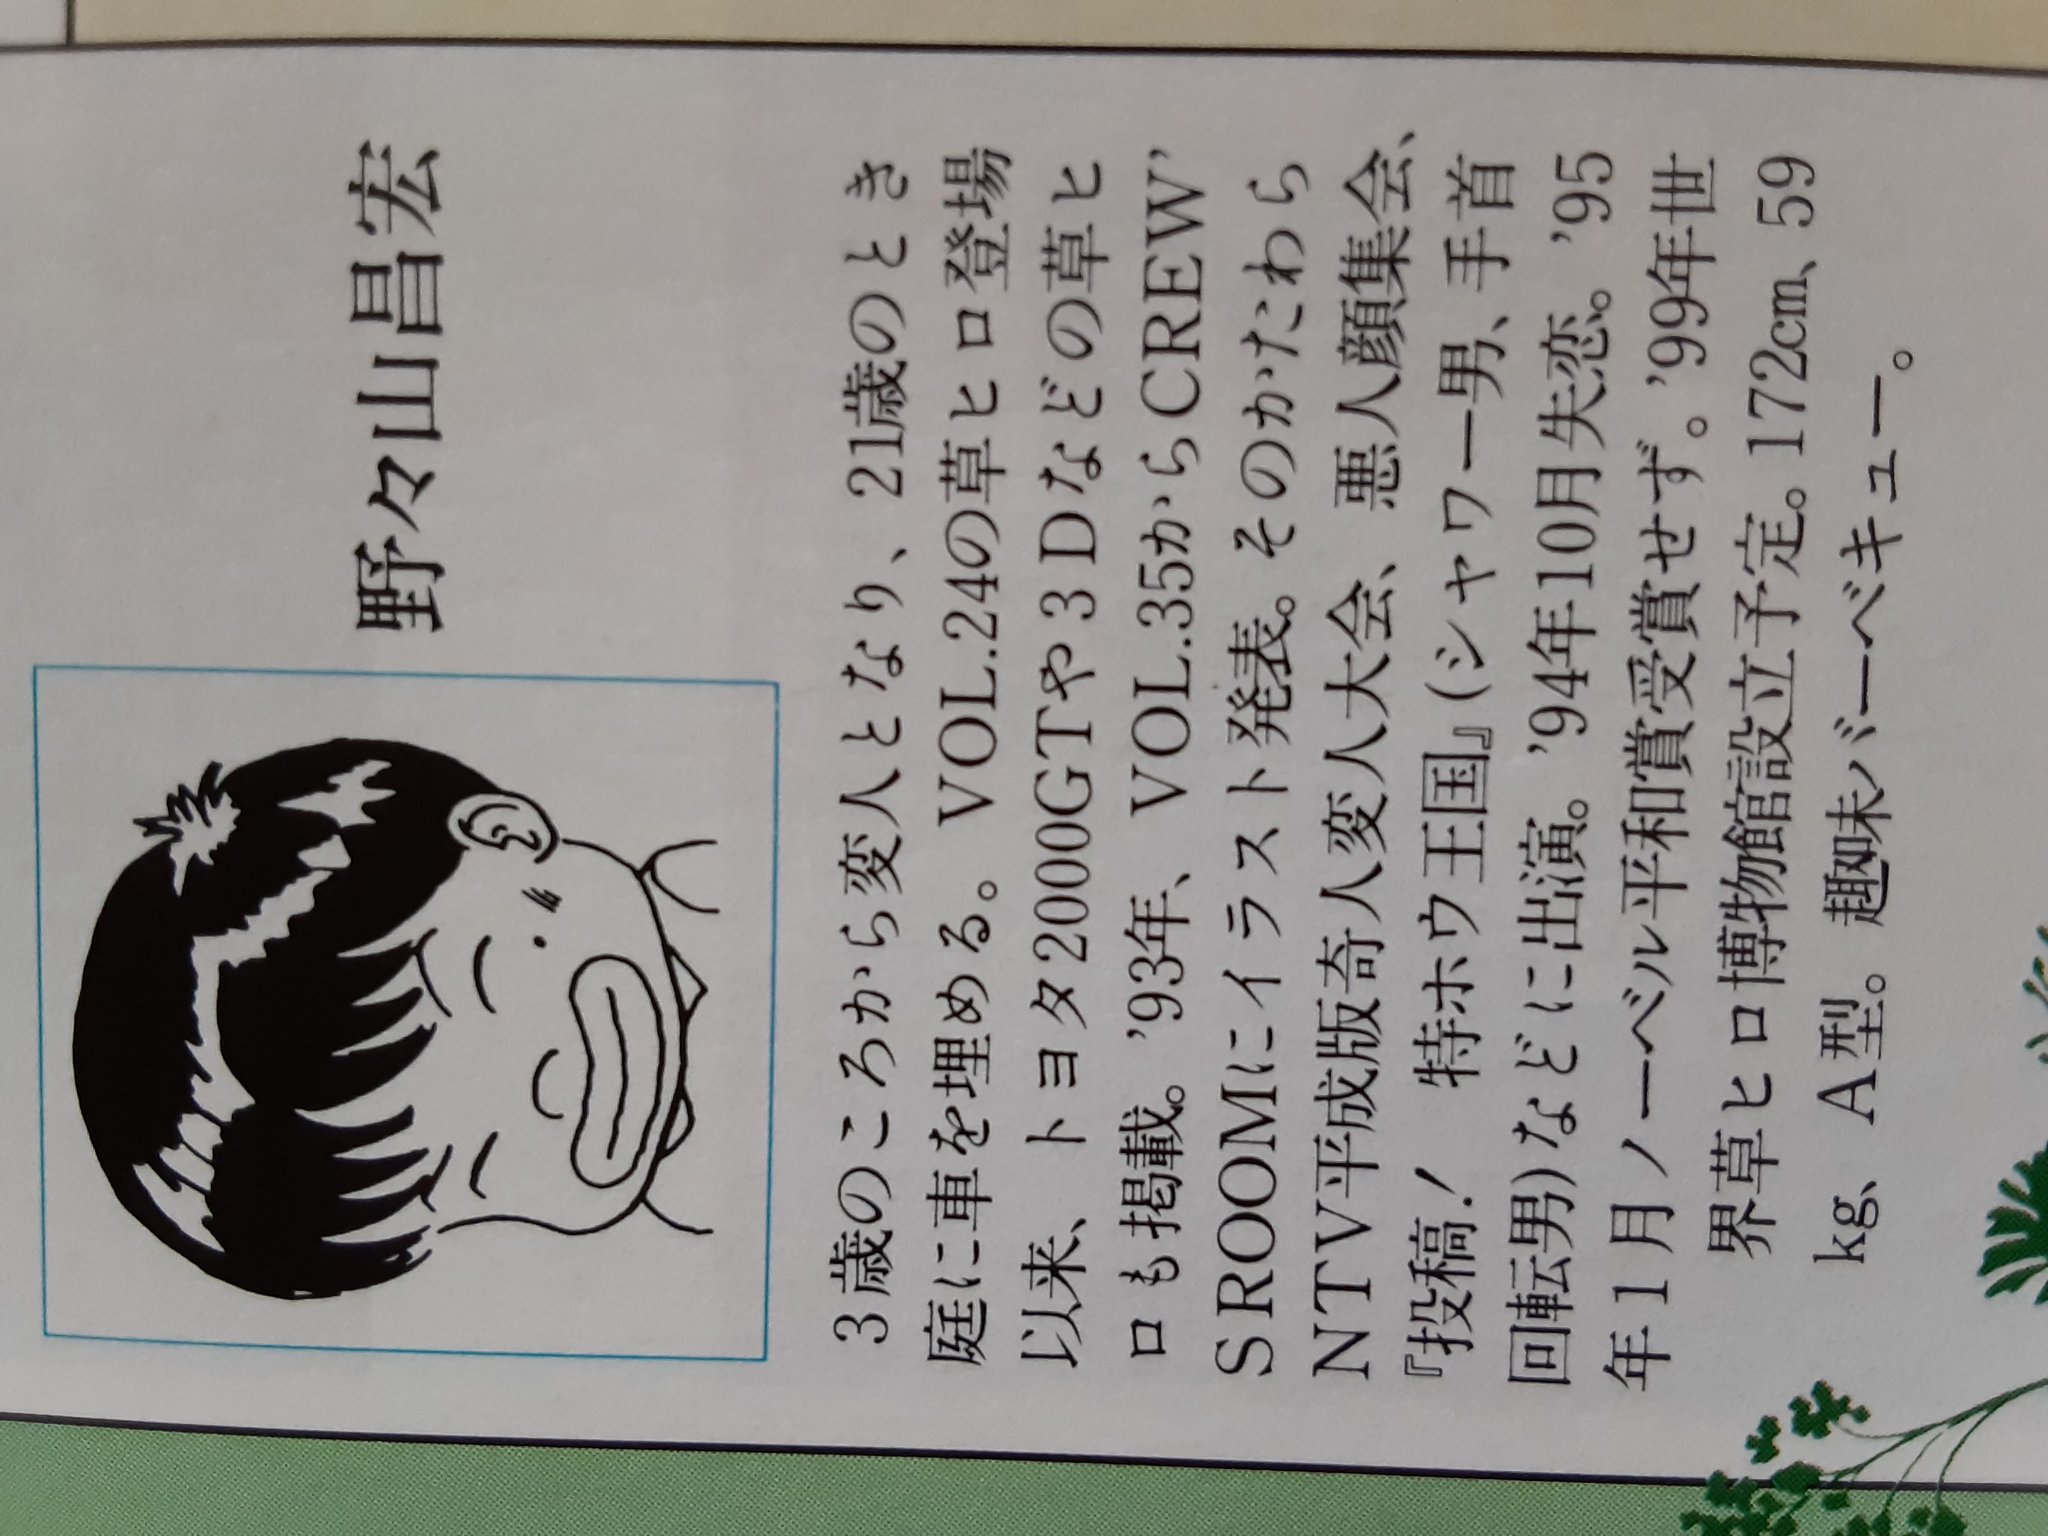 野々山昌宏
3歳のころから変人となり、21歳のとき
庭に車を埋める。VOL.24の草ヒロ登場
以来、トヨタ2000GTや3Dなどの草ヒ
ロも掲載。'93年、VOL.35からCREW'
SROOMにイラスト発表。そのかたわら
NTV平成版奇人変人大会、悪人顔集会、
『投稿! 特ホウ王国』(シャワー男、手首
回転男)などに出演。'94年10月失恋。'95
年1月ノーベル平和賞受賞せず。'99年世
界草ヒロ博物館設立予定。172cm、59
kg、A型。趣味バーベキュー。